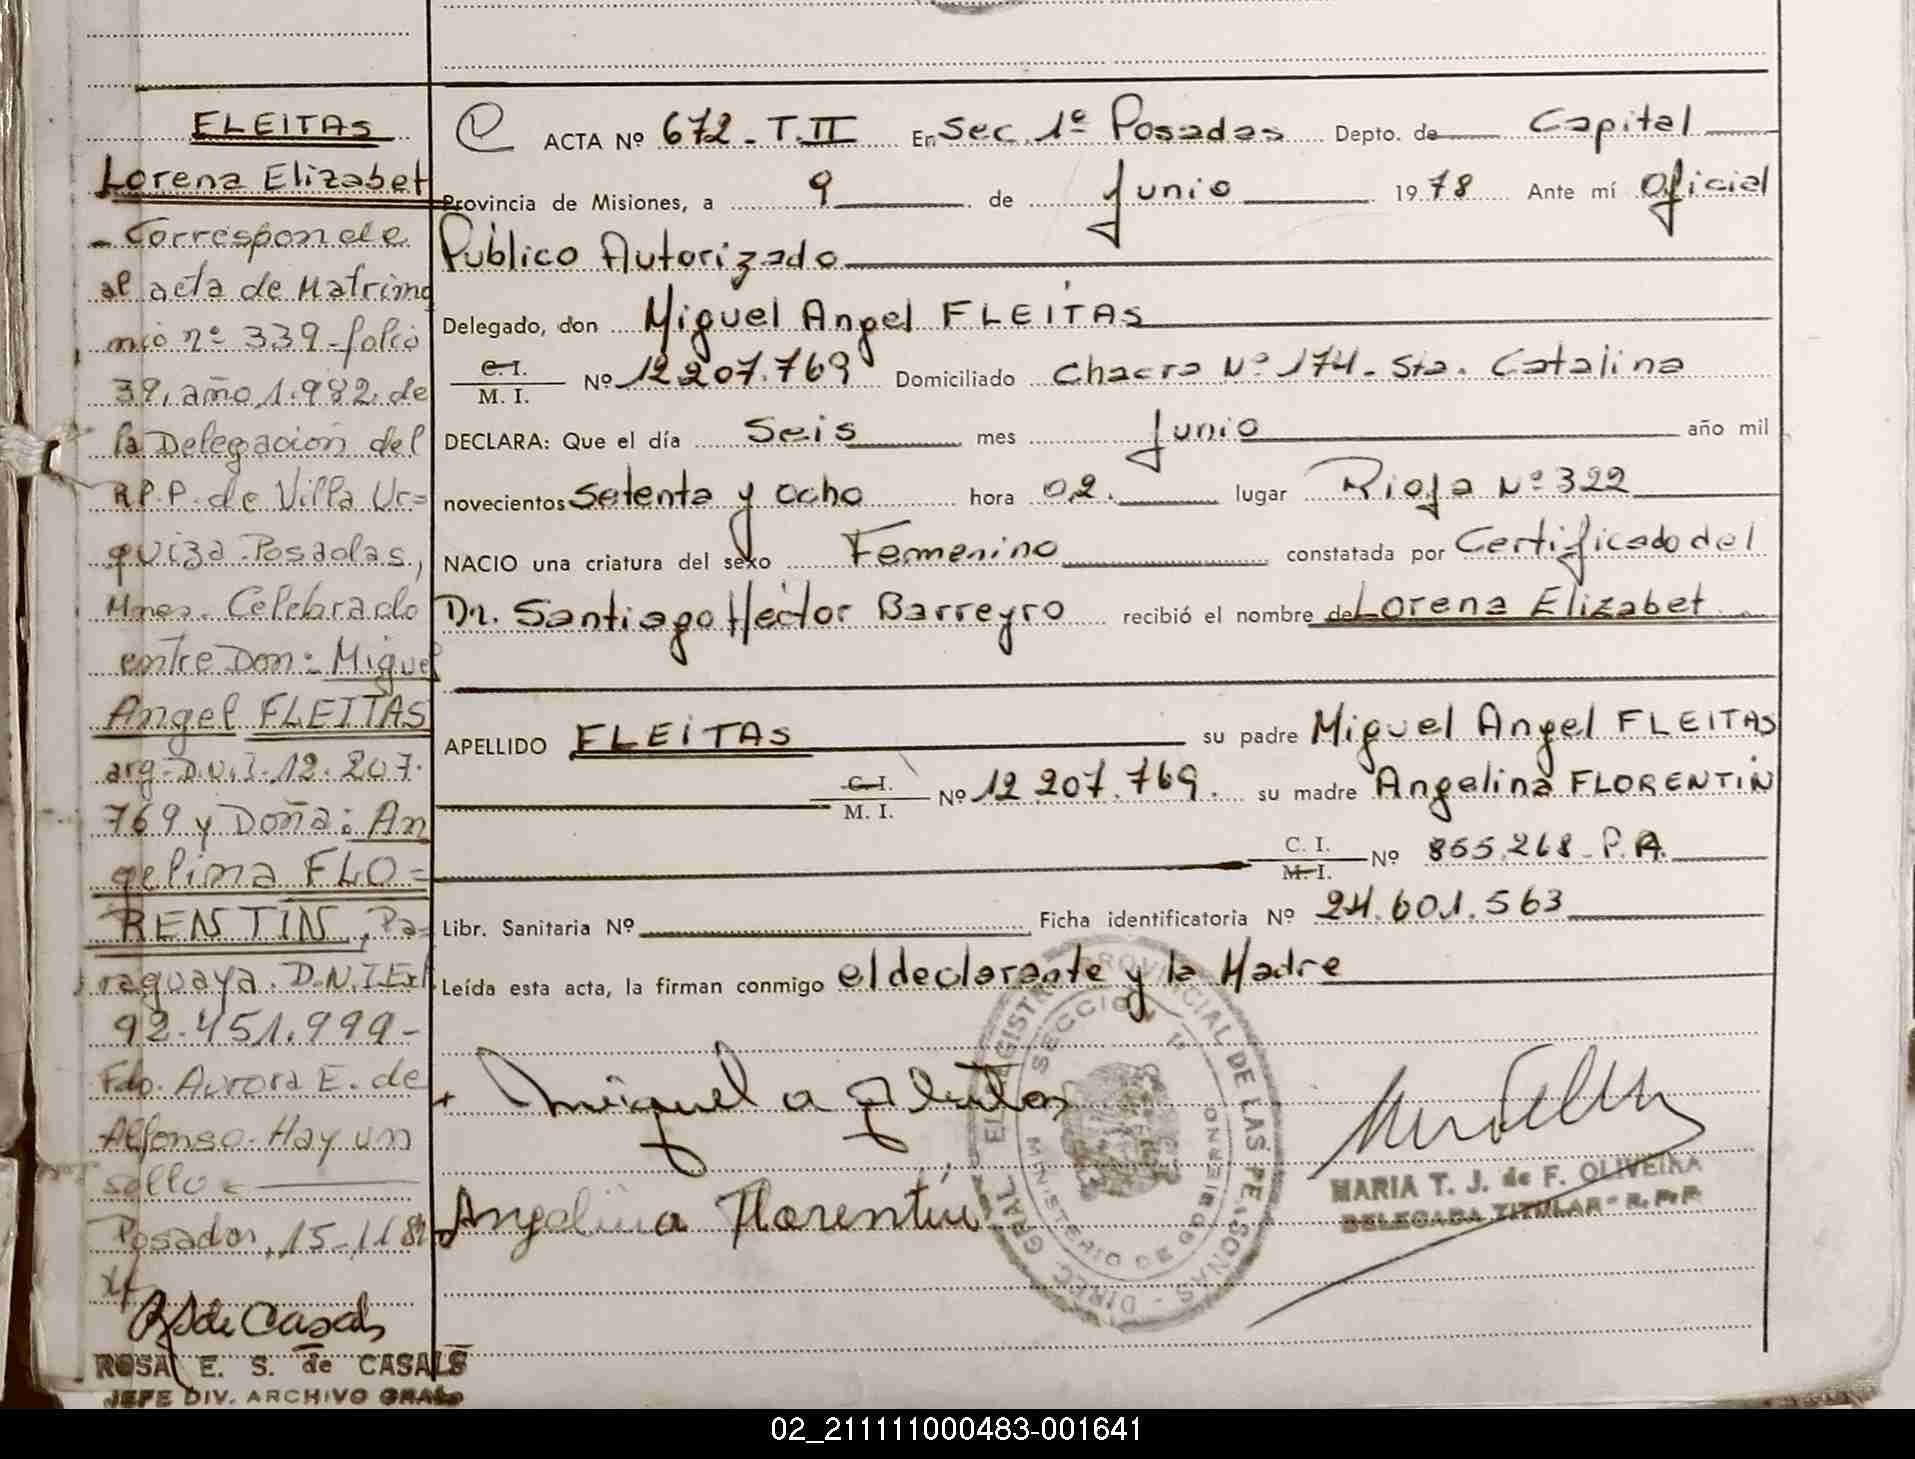 FLEITAS
Lorena Elizabet
- Corresponde
al acta de Matrimo
nio nº 339 - folio
39, año 1.982. de
la Delegación del
R.P.P. de Villa Ur=
quiza - Posadas,
Mnes. Celebrado
entre Don: Miguel
Angel FLEITAS
arg - D.N.I - 12.207.
769 y Doña: An
gelina FLO=
RENTIN, Pa=
raguaya. D.N.I Ext
92.451.999-
Fdo. Aurora E. de
Alfonso. Hay un
sello
Posadas, 15-11
RS de Casals
ROSA E. S. de CASALS
JEFE DIV. ARCHIVO GRAL.
ACTA Nº 672 - T.II En Sec. 1º Posadas Depto. de Capital
Provincia de Misiones, a 9 de Junio 1978 Ante mí Oficial
Público Autorizado
Delegado, don Miguel Angel FLEITAS
C.I.
M.I. Nº 12.207.769 Domiciliado Chacra Nº 174 - Sta. Catalina
DECLARA: Que el día Seis mes Junio año mil
novecientos Setenta y Ocho hora 02. lugar Rioja Nº 322
NACIO una criatura del sexo Femenino constatada por Certificado del
Dr. Santiago Héctor Barreyro recibió el nombre de Lorena Elizabet
APELLIDO FLEITAS su padre Miguel Angel FLEITAS
C.I.
M.I. Nº 12.207.769. su madre Angelina FLORENTIN
C.I.
M.I. Nº 855.268 - P.A.
Libr. Sanitaria Nº Ficha identificatoria Nº 24.601.563
Leída esta acta, la firman conmigo el declarante y la Madre
Miguel a Fleitas
Angelina Florentín
DIREC. GRAL. EL REGISTRO PROVINCIAL DE LAS PERSONAS -
SECCION 1ª
MINISTERIO DE GOBIERNO
MARIA T. J. de F. OLIVEIRA
DELEGADA TITULAR - R.P.P.
02_211111000483-001641